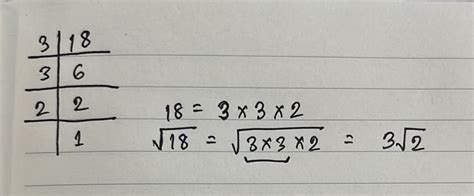 3 | 18
3 | 6
2 | 2
1
18 = 3 × 3 × 2
√18 = √3 × 3 × 2 = 3√2